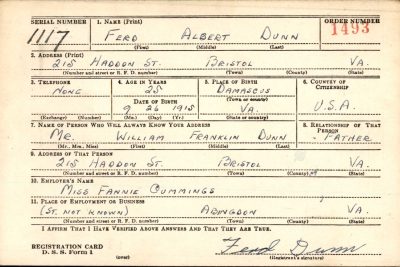 SERIAL NUMBER 1. NAME (Print) ORDER NUMBER
1117 FERD ALBERT DUNN 1493
(First) (Middle) (Last)
2. ADDRESS (Print)
215 HADDON ST. BRISTOL VA.
(Number and street or R. F. D. number) (Town) (County) (State)
3. TELEPHONE 4. AGE IN YEARS 5. PLACE OF BIRTH 6. COUNTRY OF CITIZENSHIP
NONE 25 DAMASCUS
DATE OF BIRTH (Town or county)
9 26 1915 VA. U.S.A.
(Exchange) (Number) (Mo.) (Day) (Yr.) (State or country)
7. NAME OF PERSON WHO WILL ALWAYS KNOW YOUR ADDRESS 8. RELATIONSHIP OF THAT PERSON
MR. WILLIAM FRANKLIN DUNN - FATHER
(Mr., Mrs., Miss) (First) (Middle) (Last)
9. ADDRESS OF THAT PERSON
215 HADDON ST. BRISTOL VA.
(Number and street or R. F. D. number) (Town) (County) (State)
10. EMPLOYER'S NAME
MISS FANNIE CUMMINGS
11. PLACE OF EMPLOYMENT OR BUSINESS
(ST. NOT KNOWN) ABINGDON VA.
(Number and street or R. F. D. number) (Town) (County) (State)
I AFFIRM THAT I HAVE VERIFIED ABOVE ANSWERS AND THAT THEY ARE TRUE.
REGISTRATION CARD
D. S. S. Form 1 (over) Ferd Dunn
(Registrant's signature)